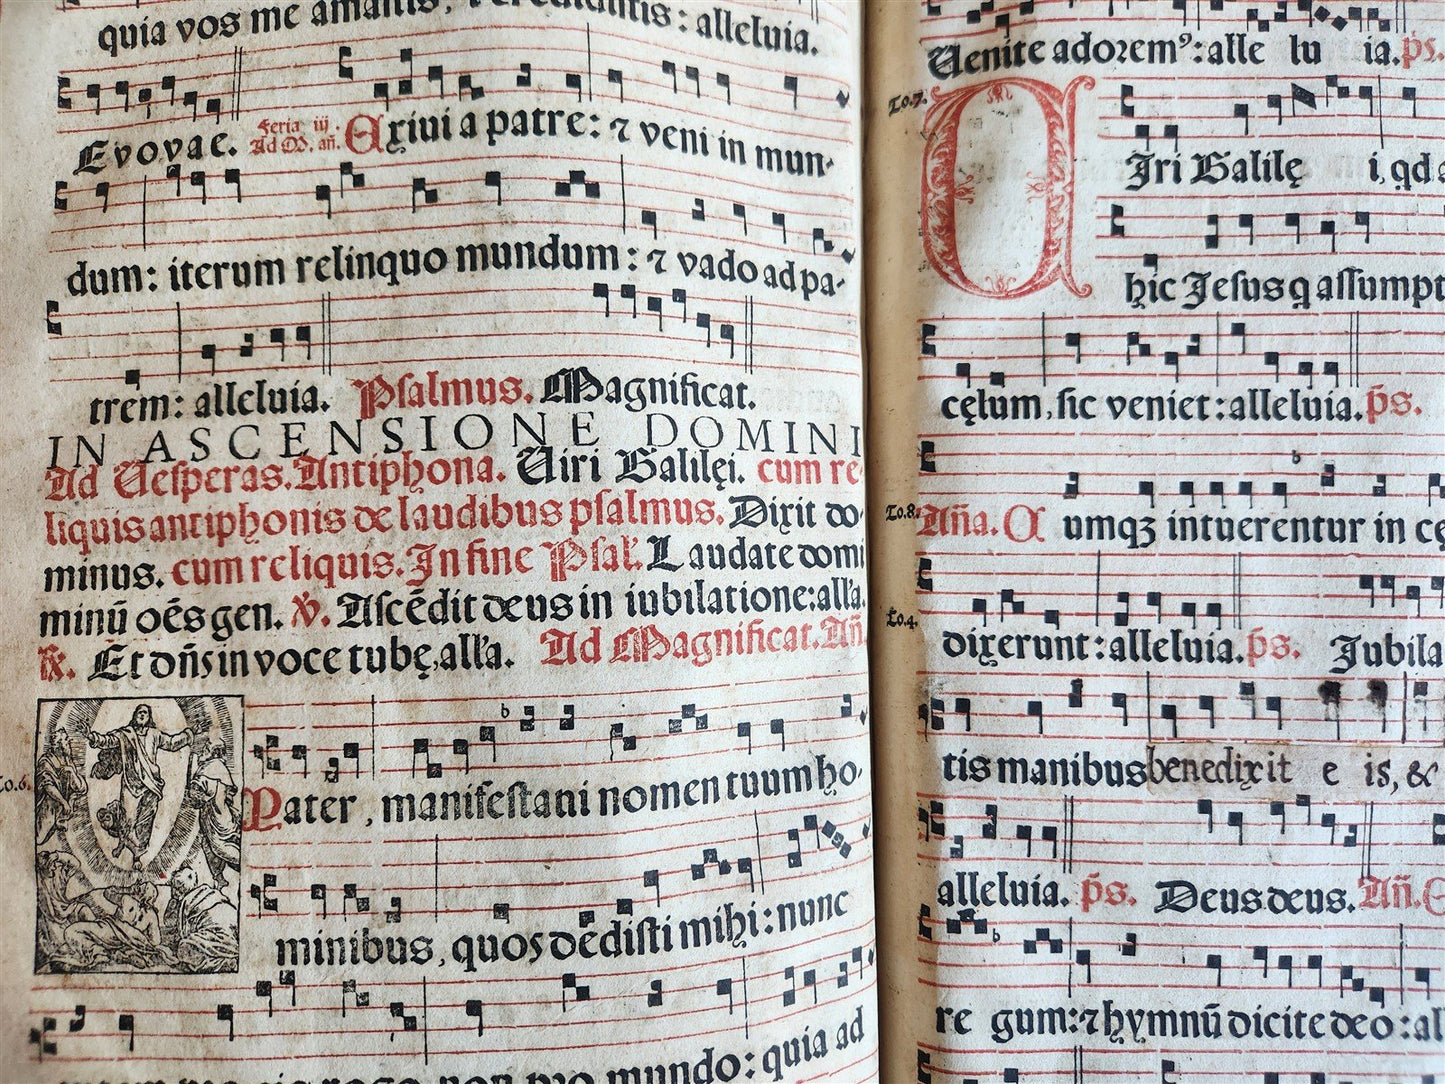 quia vos me amastis, ⁊ credidistis: alleluia.
Evovae. Feria iij Ad M. añ. Exivi a patre: ⁊ veni in mun-
dum: iterum relinquo mundum: ⁊ vado ad pa-
trem: alleluia. Psalmus. Magnificat.
IN ASCENSIONE DOMINI
Ad Vesperas. Antiphona. Viri Galilęi. cum re-
liquis antiphonis de laudibus psalmus. Dixit do-
minus. cum reliquis. In fine Psal'. Laudate domi
minū oēs gen. ℣. Ascēdit deus in iubilatione: all'a.
℟. Et dñs in voce tubę, all'a. Ad Magnificat. Añ.
To.6.
Pater, manifestavi nomen tuum ho-
minibus, quos dedisti mihi: nunc
non pro mundo: quia ad
Venite adoremꝰ: alle lu ia. p̄s.
To.7.
Viri Galilę i, qd a
hic Jesus q assumpt
cęlum, sic veniet: alleluia. p̄s.
To.8. Aña. Cumqꝫ intuerentur in cę
dixerunt: alleluia. p̄s. Jubila
To.4.
tis manibus benedixit e is, &
alleluia. p̄s. Deus deus. Añ.
re gum: ⁊ hymnū dicite deo: al